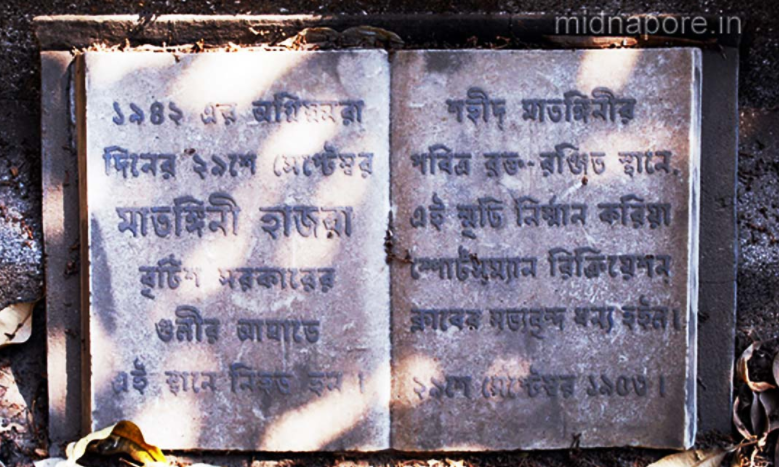 midnapore.in
১৯৪২ এর অগ্নিঝরা
দিনের ২৯শে সেপ্টেম্বর
মাতঙ্গিনী হাজরা
বৃটিশ সরকারের
গুলীর আঘাতে
এই স্থানে নিহত হন ।
শহীদ মাতঙ্গিনীর
পবিত্র রক্ত-রঞ্জিত স্থানে,
এই স্মৃতি নির্ম্মান করিয়া
স্পোর্টসম্যান রিক্রিয়েশন
ক্লাবের সভ্যবৃন্দ ধন্য হইল ।
২৯শে সেপ্টেম্বর ১৯৫৩ ।